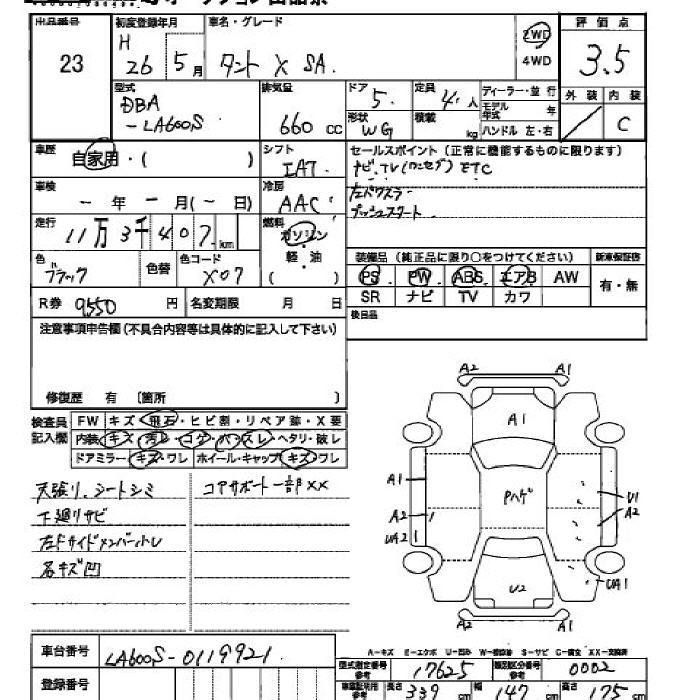 出品番号 初度登録年月 車名・グレード 評価点
23 H 26 5月 タント X SA. 2WD 4WD 3.5
型式 排気量 ドア 定員 ディーラー・並行 外装 内装
DBA -LA600S 660cc 5. 4.人 モデル年式 年 C
形状 WG 積載 kg ハンドル 左・右
車歴 自家用・( ) シフト IAT. セールスポイント (正常に機能するものに限ります)
ナビ.TV(ワンセグ) ETC
車検 - 年 - 月(- 日) 冷房 AAC 左パワスラ
プッシュスタート
走行 11万3千407km 燃料 ガソリン 軽・油 ( )
色 ブラック 色替 色コード X07 装備品 (純正品に限り○をつけてください) 新車保証書
PS PW ABS エアB AW 有・無
SR ナビ TV カワ
R券 9550円 名変期限 月 日 後日品
注意事項申告欄(不具合内容等は具体的に記入して下さい)
修復歴 有 〔箇所 〕
検査員記入欄 FW キズ・飛石・ヒビ割・リペア跡・X要
内装 キズ・汚レ・コゲ・ハ・スレ・ヘタリ・破レ
ドアミラー・キズ・ワレ ホイール・キャップ・キズ・ワレ
天張り.シートシミ コアサポート一部XX
下廻リサビ
名キズ凹
A2 A1
A1
A1 Pハゲ U1
A2 A2
UA2 UA1
U2
A2 A1
A-キズ E-エクボ U-凹み W-補修跡 S-サビ C-腐食 XX-交換済
車台番号 LA600S-0119921
型式指定番号 17625 類別区分番号 0002
登録番号 長さ 339cm 幅 147cm 高さ 175cm